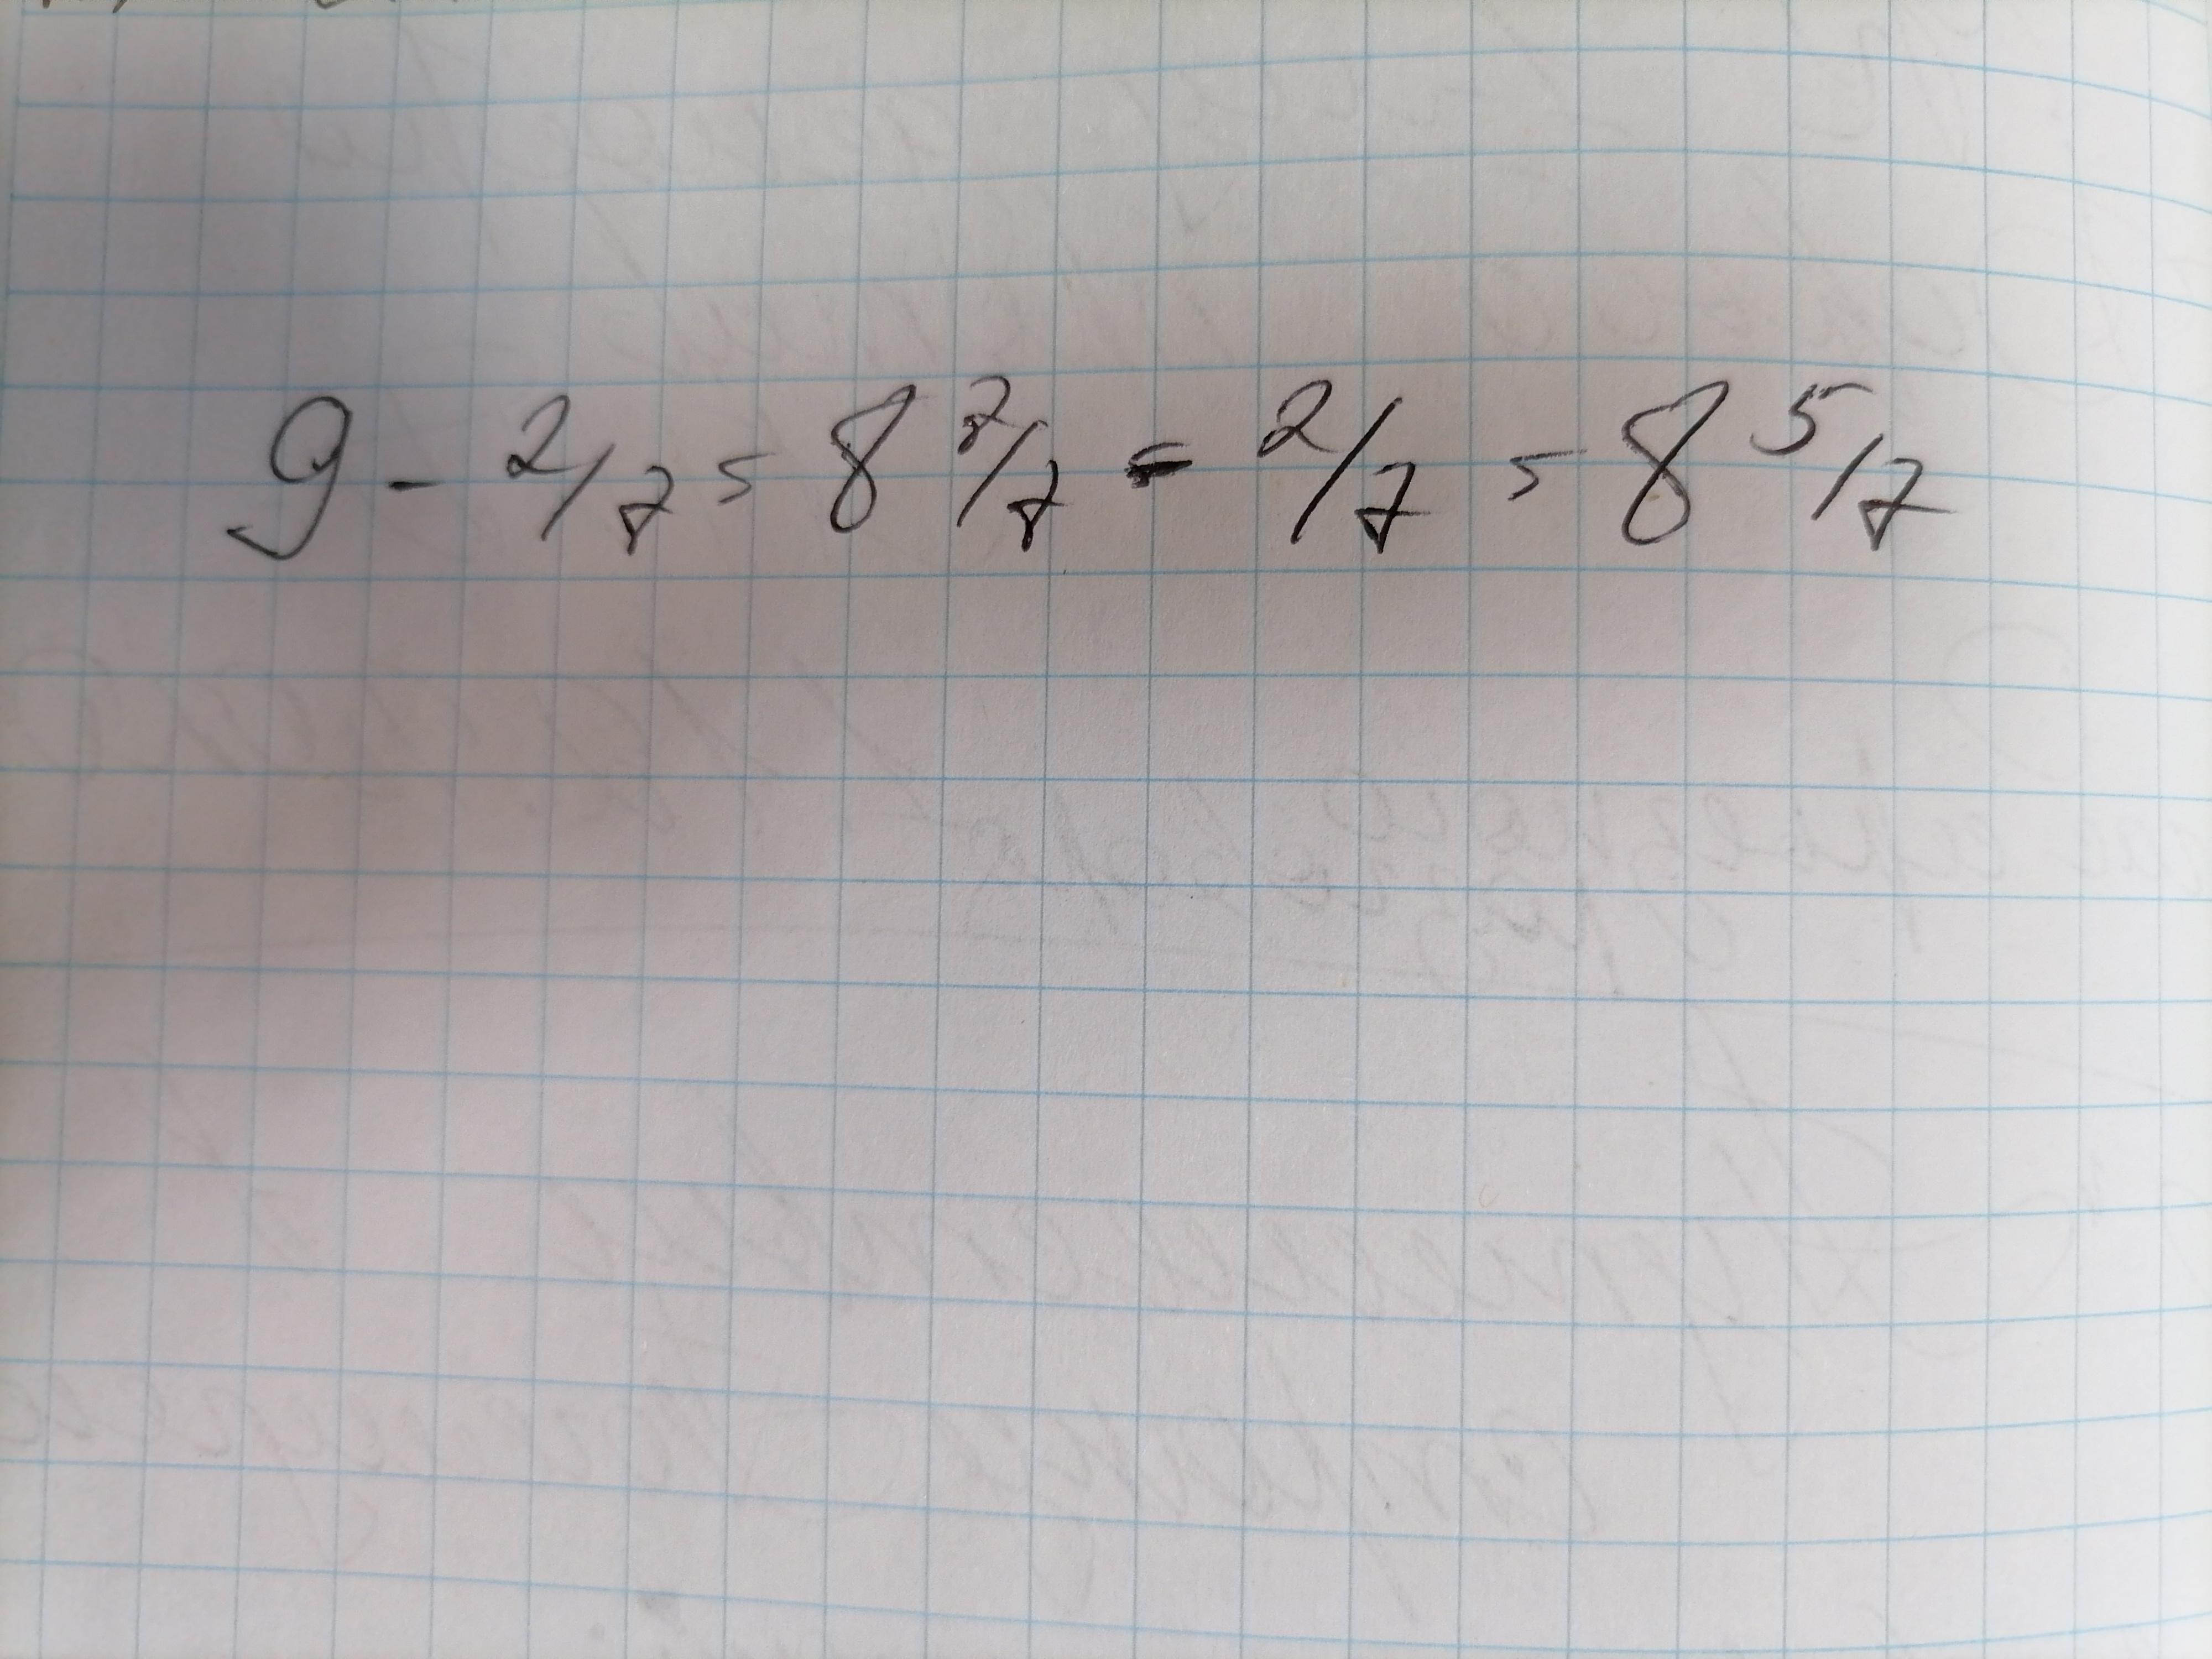 9 - 2/7 = 8 7/7 - 2/7 = 8 5/7